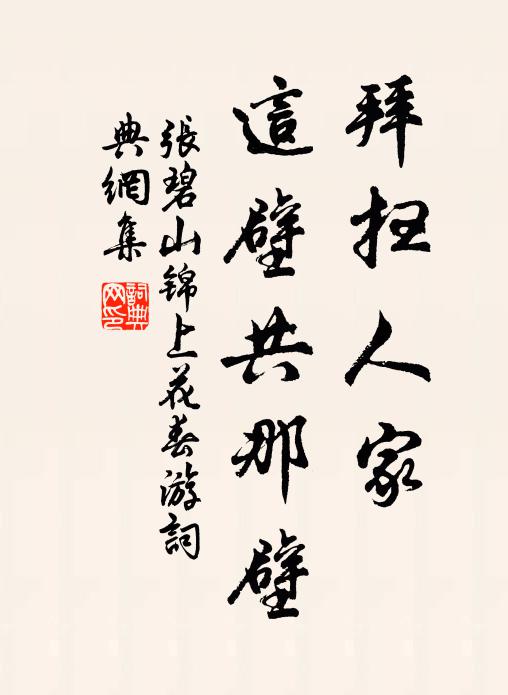 拜扫人家
這壁共那壁
張碧山錦上花春游詞
典網集
詞典網印